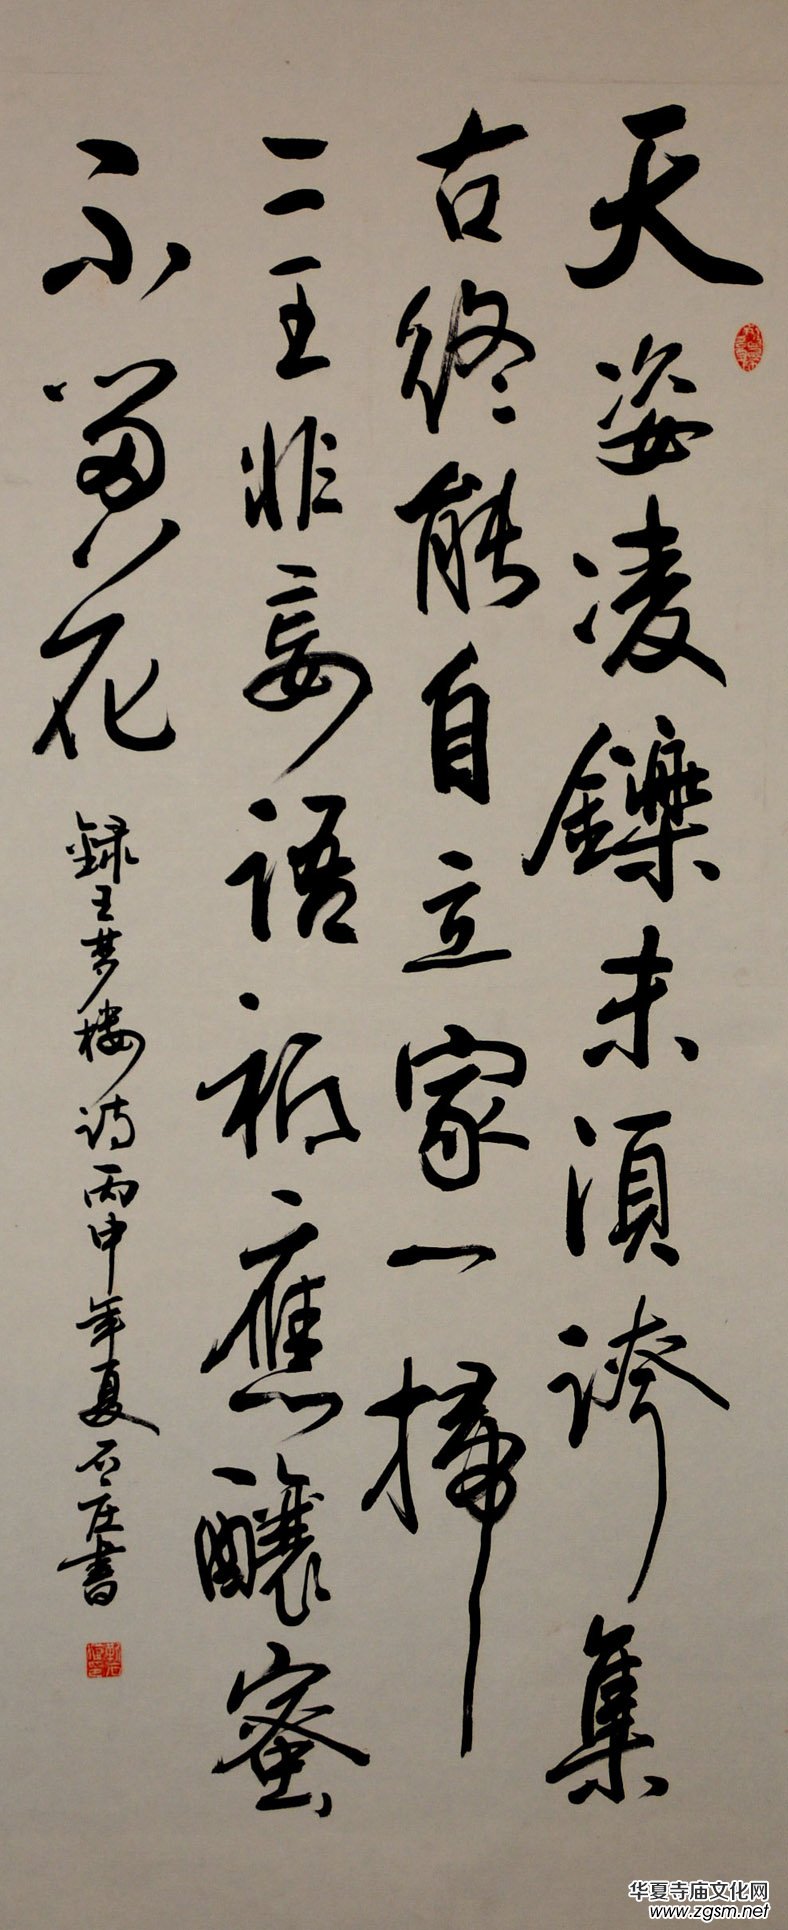 天姿凌鑠未須誇集
古終能自立家一掃
二王非妄語祇應釀蜜
不留花
録王梦楼诗丙申年夏石庄書
华夏寺庙文化网
www.zgsm.net